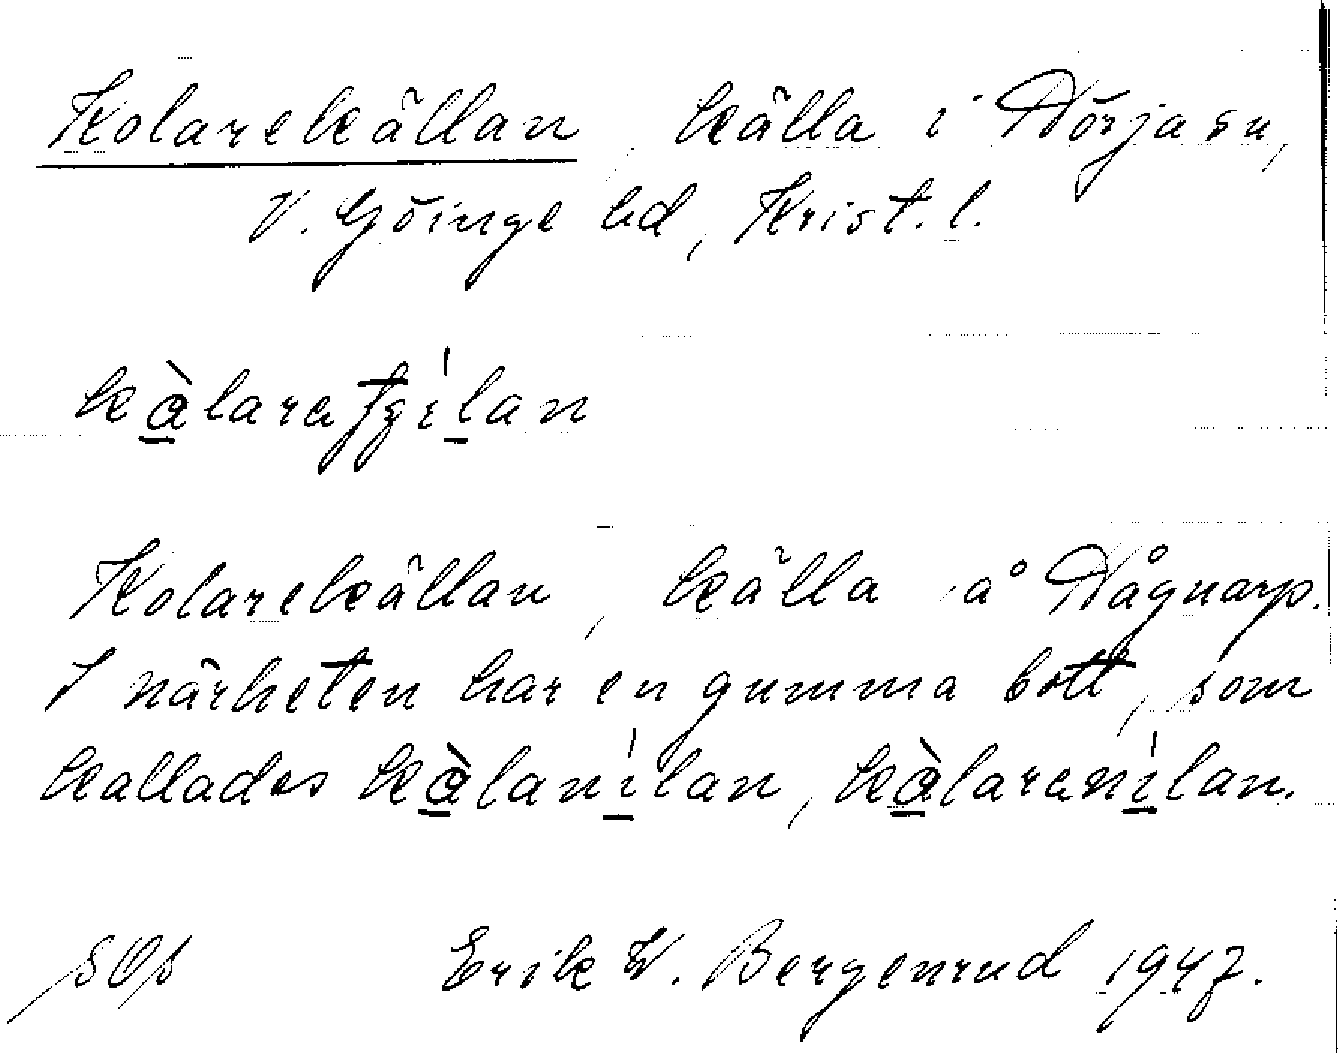 Kolarekällan, källa i Nörja sn,
V. Göinge hd, Krist. l.
kàlaratʃílan
Kolarekällan, källa å Någnarp.
I närheten har en gumma bott, som
kallades kàlanílan, kàlaranílan.
Erik W. Bergenrud 1947.